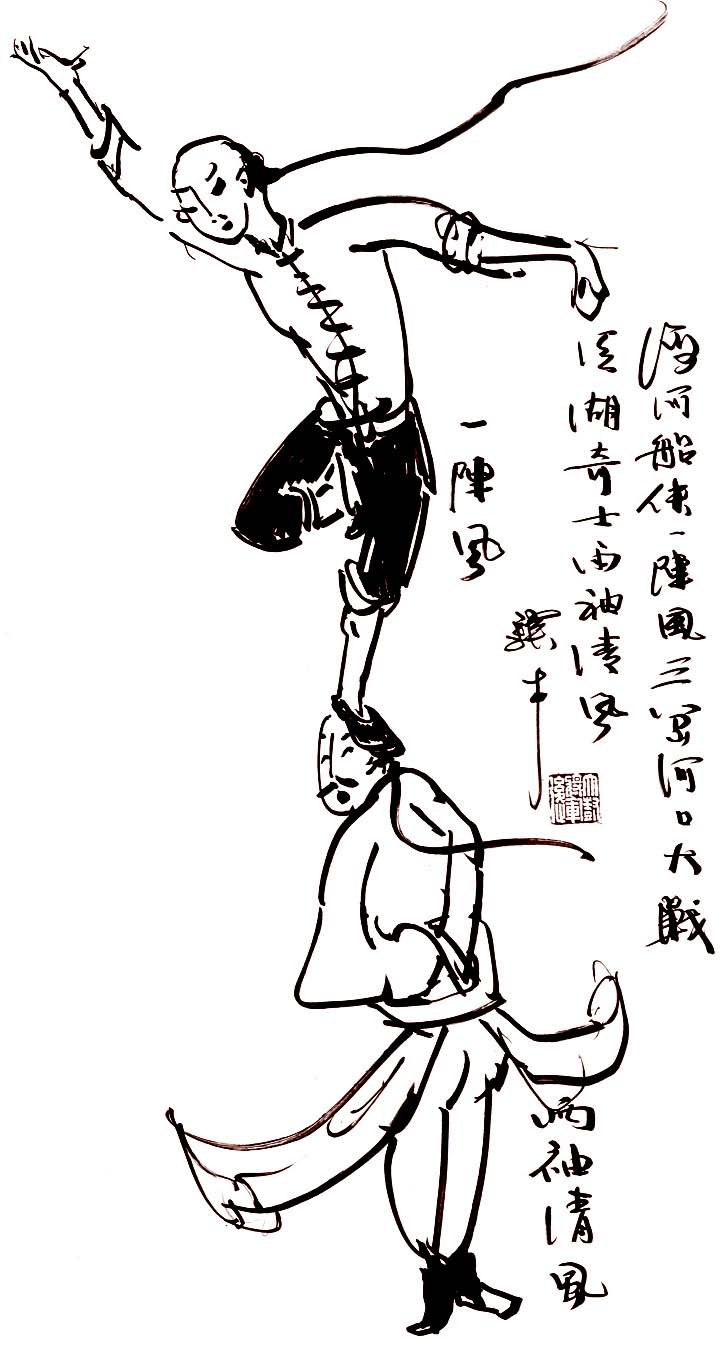 河船侠一陣風三岔河口大戰
江湖奇士两袖清風
一陣風
两袖清風